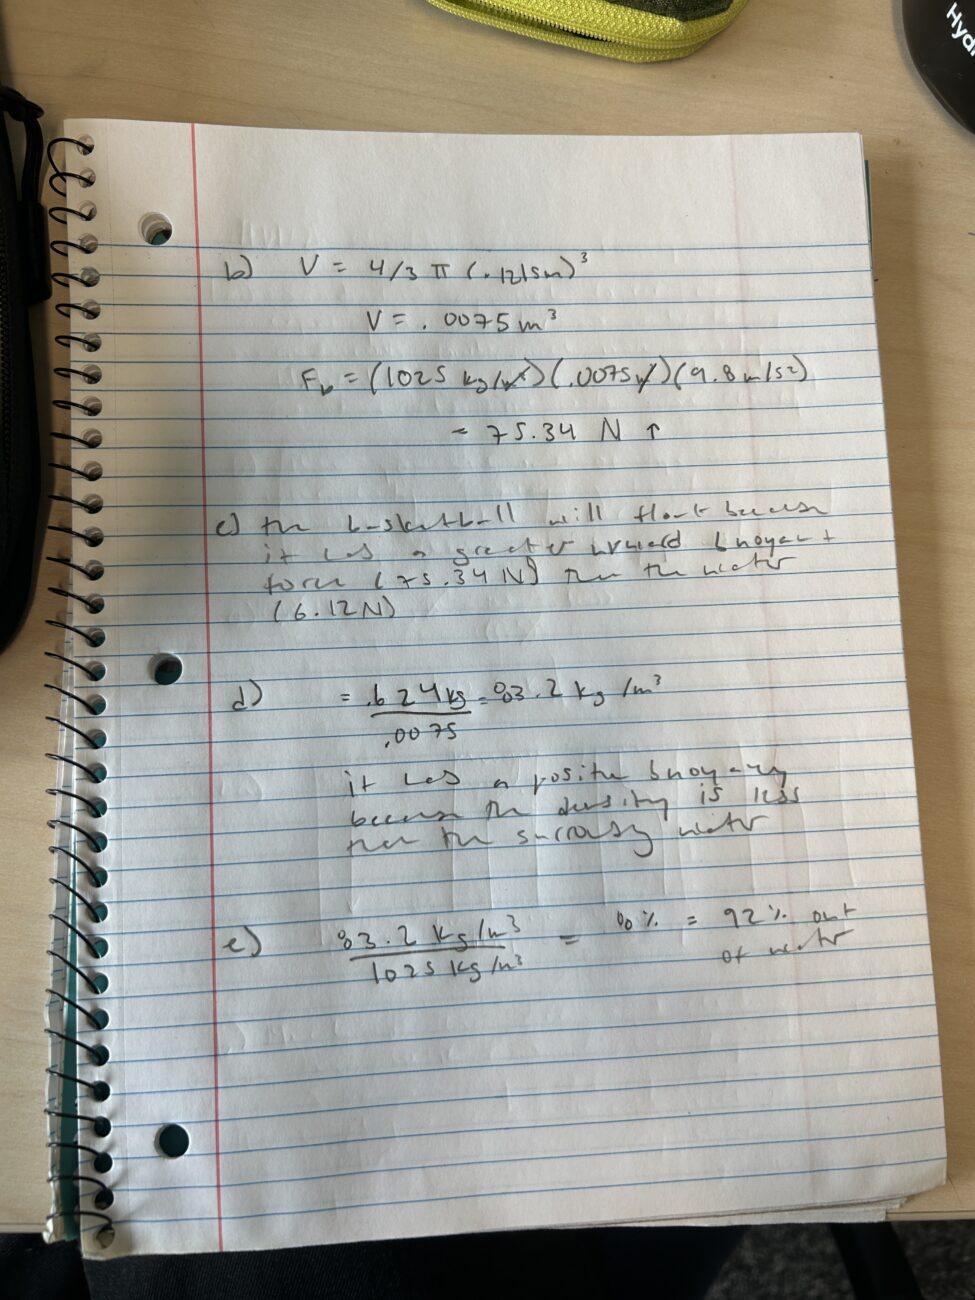 Hyd
b) V = 4/3 π (.1215m)³
V = .0075 m³
F_b = (1025 kg/m³)(.0075m³)(9.8 m/s2)
= 75.34 N ↑
c) the basketball will float because
it has a greater upward buoyant
force (75.34 N) than the water
(6.12N)
d) = .624kg/.0075 = 83.2 kg/m³
it has a positive buoyancy
because the density is less
than the surroundy water
e) 83.2 kg/m³/1025 kg/m³ = 8% = 92% out
of water